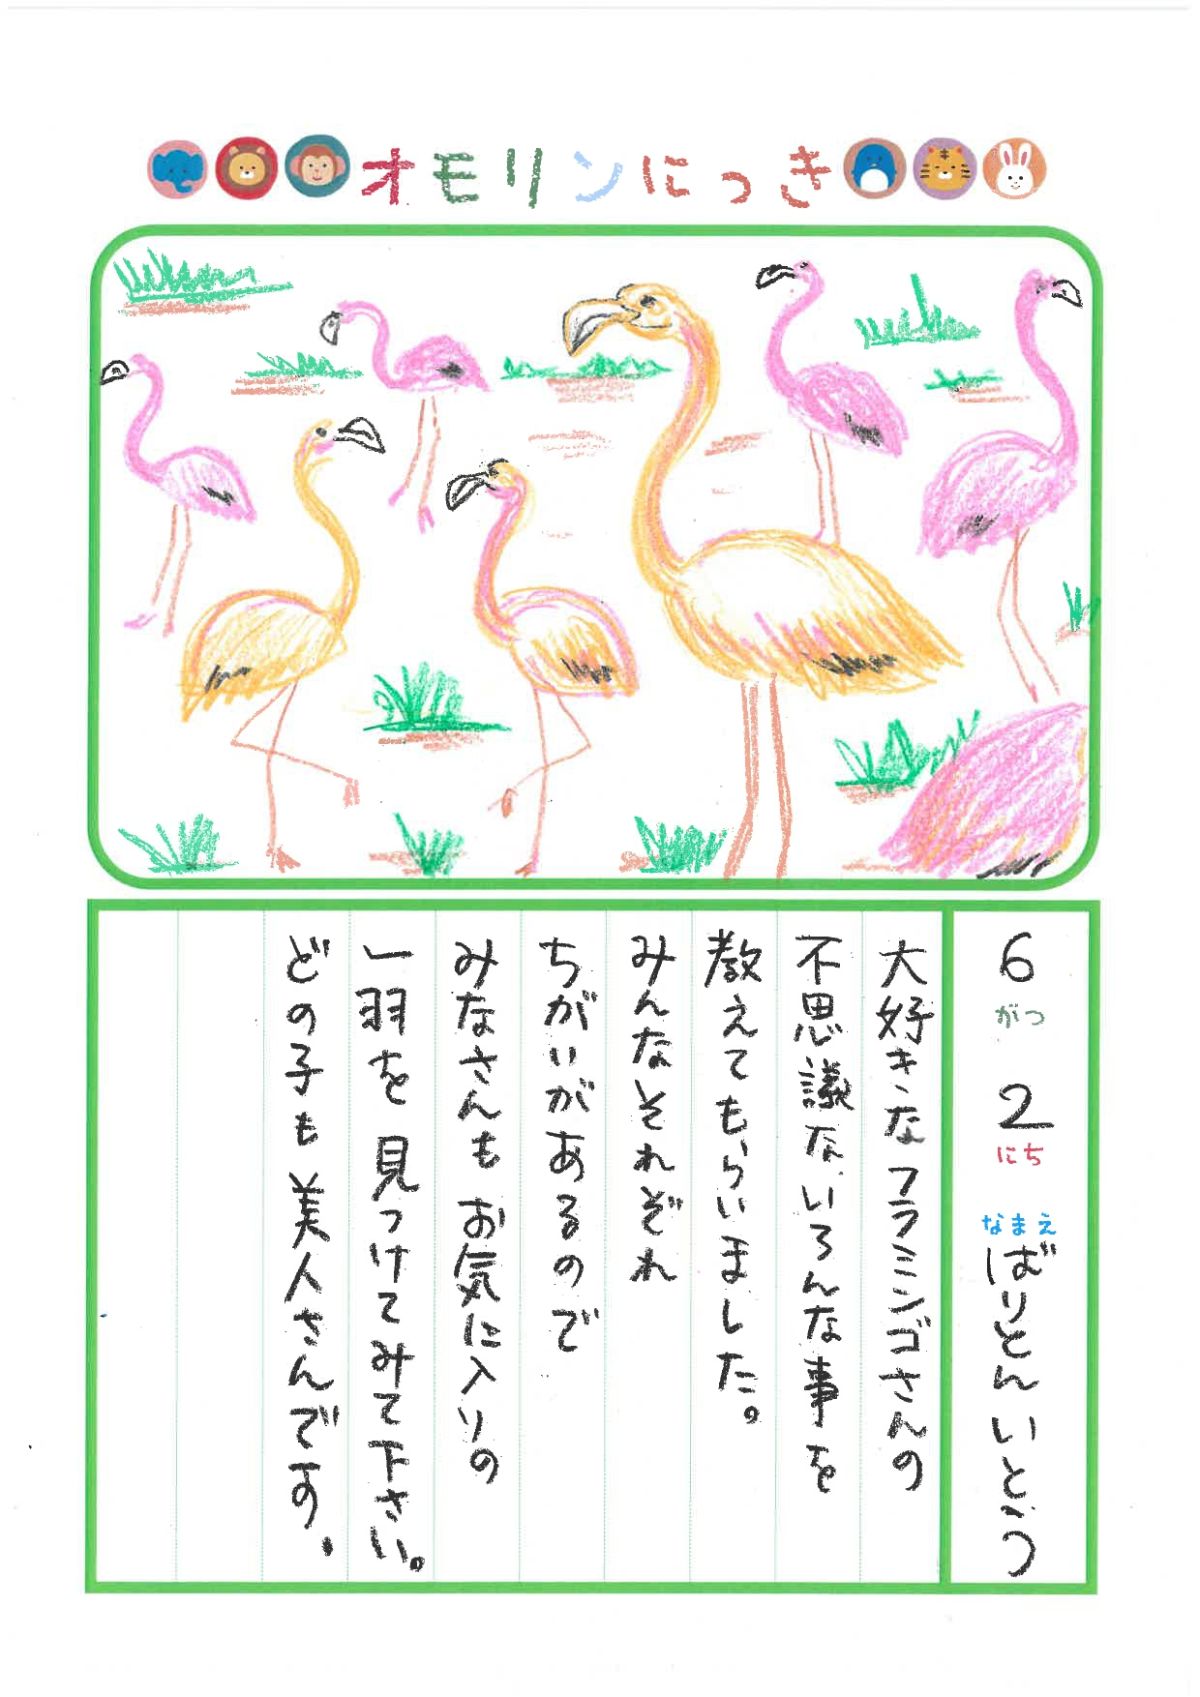 オモリンにっき
6がつ2にち なまえ ばりとん いとう
大好きなフラミンゴさんの
不思議な、いろんな事を
教えてもらいました。
みんなそれぞれ
ちがいがあるので
みなさんもお気に入りの
一羽を見つけてみて下さい。
どの子も美人さんです。